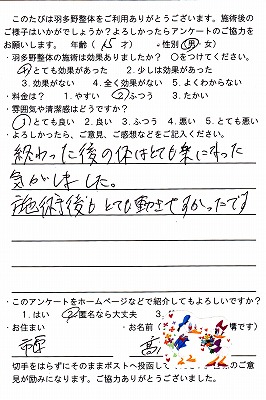 このたびは羽多野整体をご利用ありがとうございます。施術後の
ご様子はいかがでしょうか？よろしかったらアンケートのご協力を
お願いします。 年齢（15才） ・性別（男・女）
・羽多野整体の施術は効果はありましたか？ ○をつけてください。
1.とても効果があった 2.少しは効果があった
3.効果がない 4.全く効果がない 5.よくわからない
・料金は？ 1.やすい 2.ふつう 3.たかい
・雰囲気や清潔感はどうですか？
1.とても良い 2.良い 3.ふつう 4.悪い 5.とても悪い
・よろしかったら、ご意見、ご感想などをご記入ください。
終わった後の体はとても楽になった
気がしました。
施術後もとても動きやすかったです
・このアンケートをホームページなどで紹介してもよろしいですか？
1.はい 2.匿名なら大丈夫 3.
・お住まい ・お名前（ 構です）
市
高
切手をはらずにそのままポストへ投函して の意
見が励みになります。ご協力ありがとうございました。